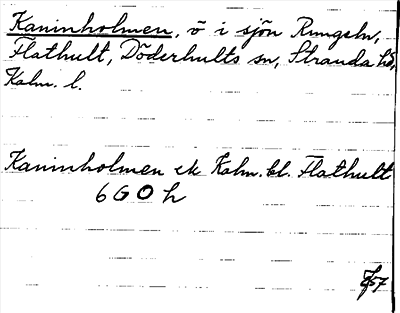 Kaninholmen, ö i sjön Rungeln,
Flathult, Döderhults sn, Stranda hd,
Kalm. l.
Kaninholmen ek Kalm. bl. Flathult
6 G 0 h